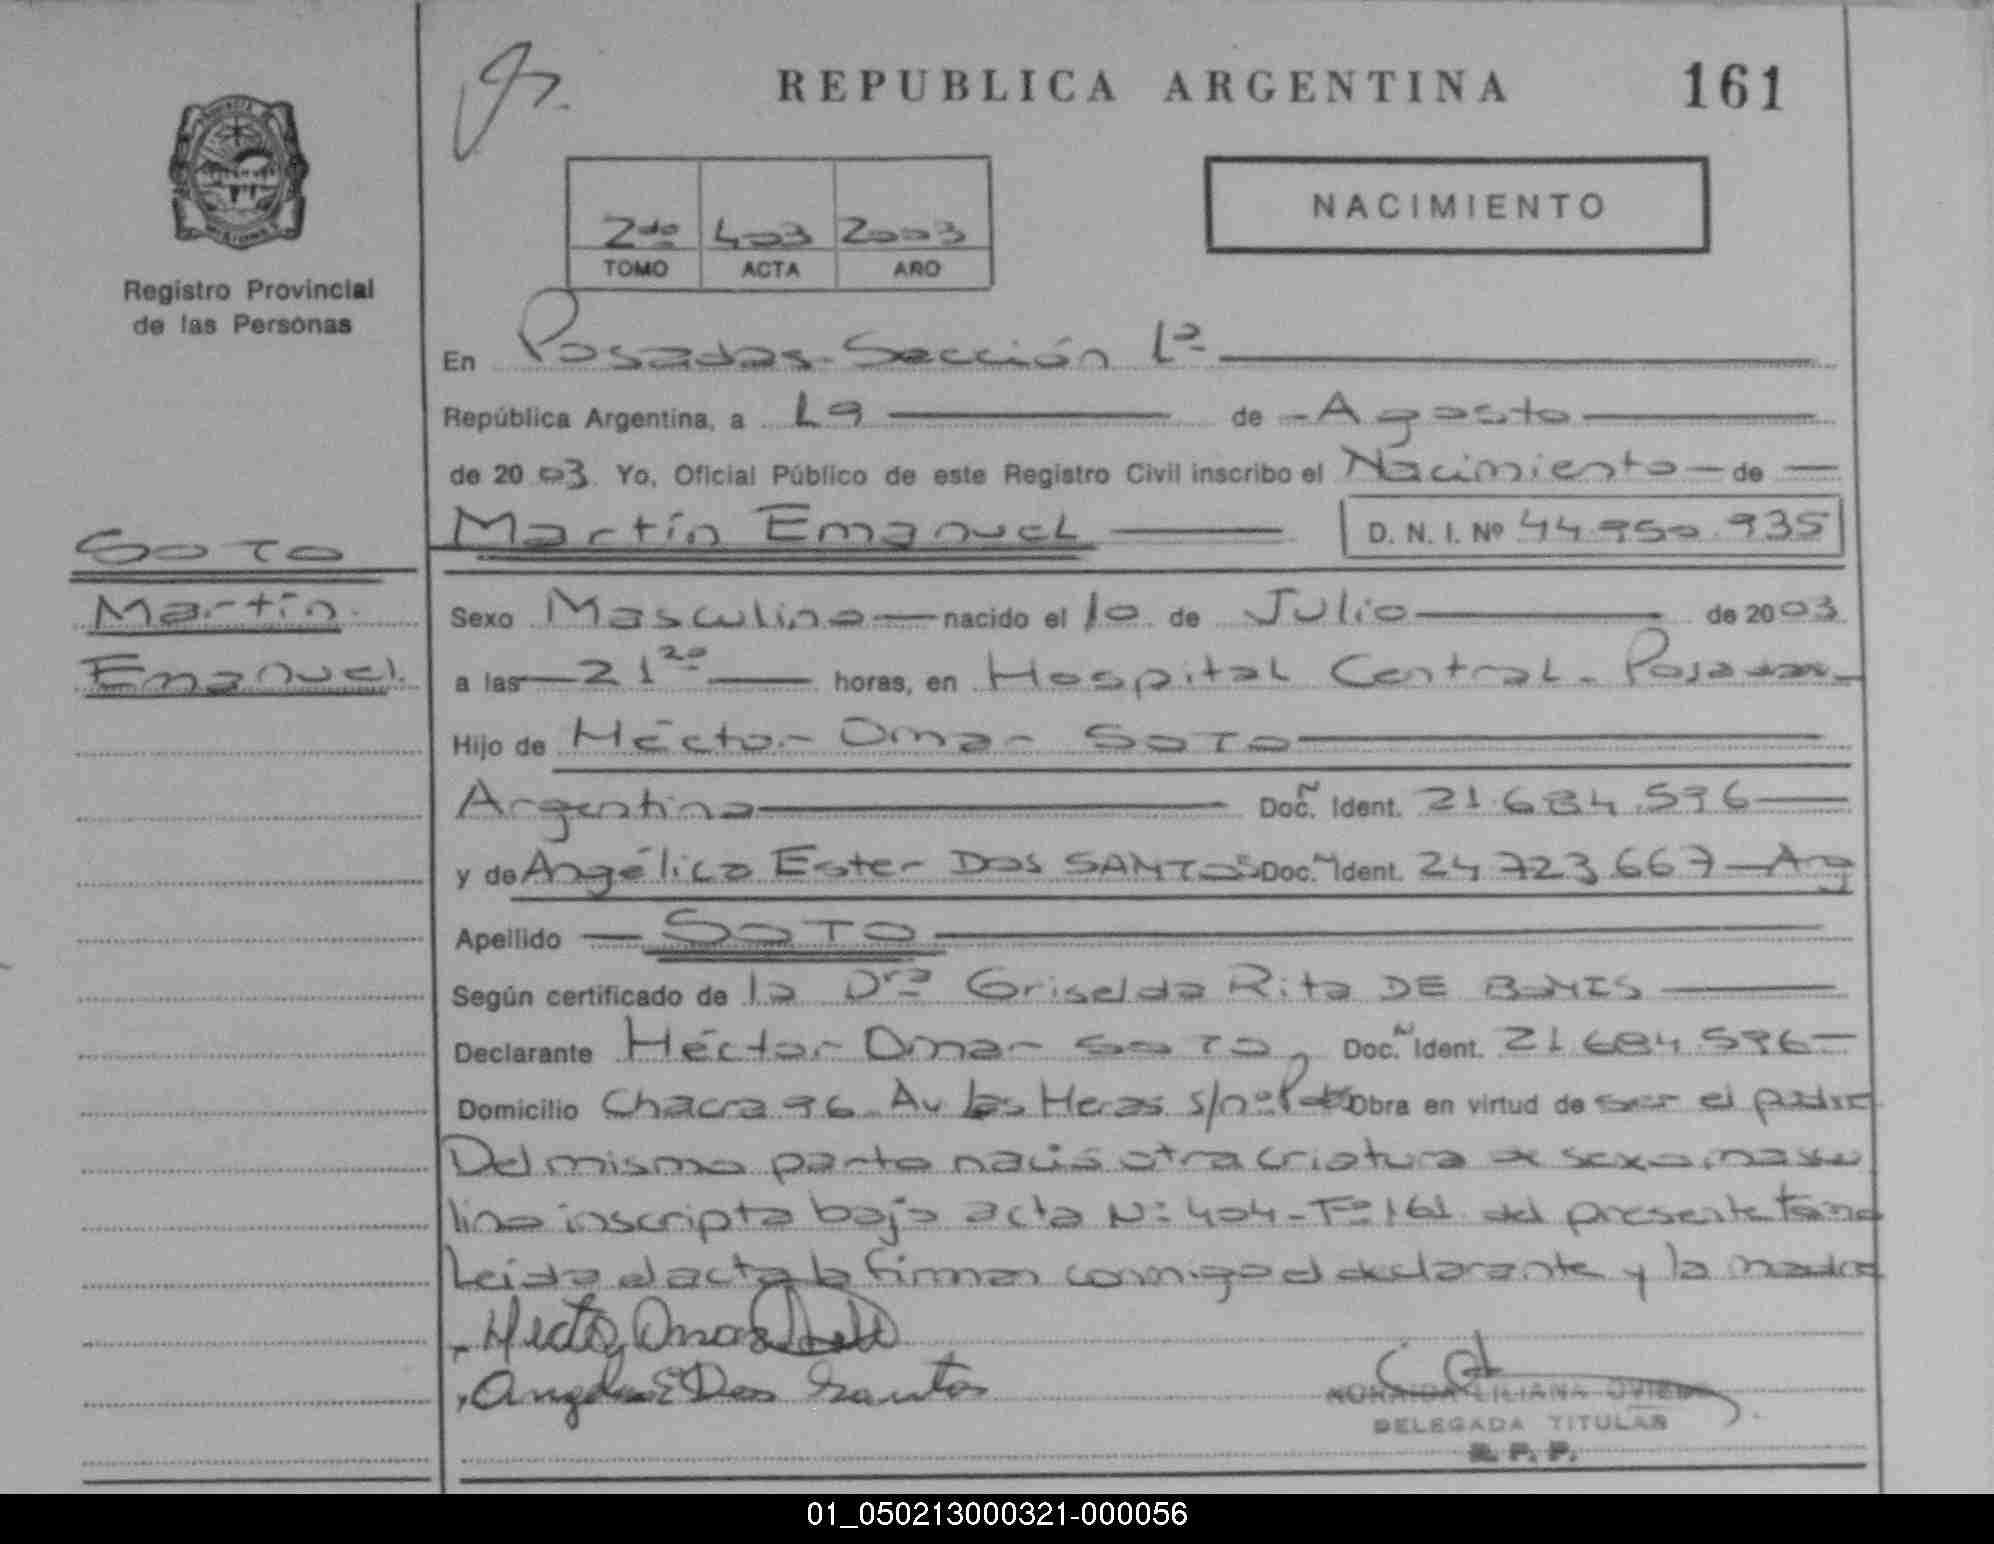 REPUBLICA ARGENTINA
161
NACIMIENTO
2do 403 2003
TOMO ACTA AÑO
Registro Provincial
de las Personas
En Posadas. Sección 1ª
República Argentina, a 19 de Agosto
de 2003. Yo, Oficial Público de este Registro Civil inscribo el Nacimiento de
Martín Emanuel D. N. I. Nº 44.950.935
SOTO
Martín
Emanuel
Sexo Masculino nacido el 10 de Julio de 2003
a las 21 20 horas, en Hospital Central. Posadas
Hijo de Héctor Omar SOTO
Argentino Doc. Ident. 21.684.596
y de Angélica Ester DOS SANTOS Doc. Ident. 24.723.667 Arg
Apellido SOTO
Según certificado de la Drª Griselda Rita DE BONIS
Declarante Héctor Omar SOTO, Doc. Ident. 21.684.596
Domicilio Chacra 96 Av Las Heras s/nº Obra en virtud de ser el padre
Del mismo parto nació otra criatura de sexo mascu
lino inscripta bajo acta Nº 404 - Fº 161 del presente tomo
Leida el acta la firman conmigo el declarante y la madre
Hector Omar Soto
Angelica E Dos Santos
LILIANA OVIEDO
DELEGADA TITULAR
R. P. P.
01_050213000321-000056